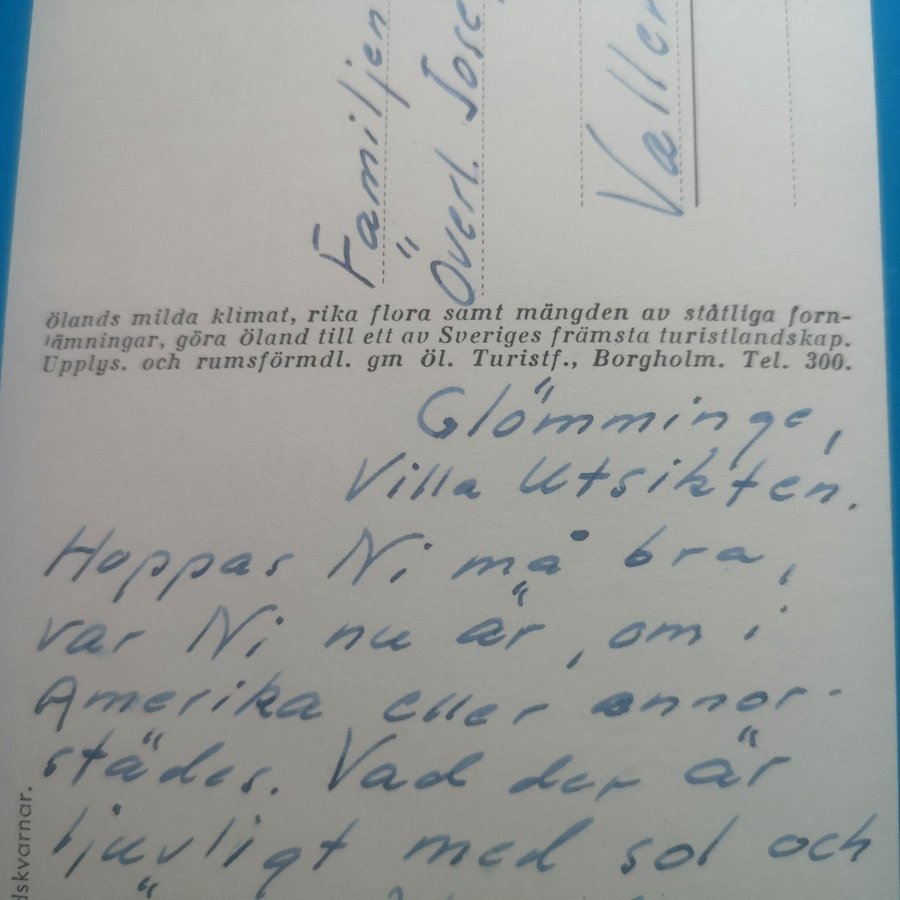 Familjen
Överl. Jose
Valler
ölands milda klimat, rika flora samt mängden av ståtliga forn-
lämningar, göra Öland till ett av Sveriges främsta turistlandskap.
Upplys. och rumsförmdl. gm öl. Turistf., Borgholm. Tel. 300.
Glömminge,
Villa Utsikten.
Hoppas Ni må bra,
var Ni nu är, om i
Amerika eller annor-
städes. Vad der är
ljuvligt med sol och
dskvarnar.